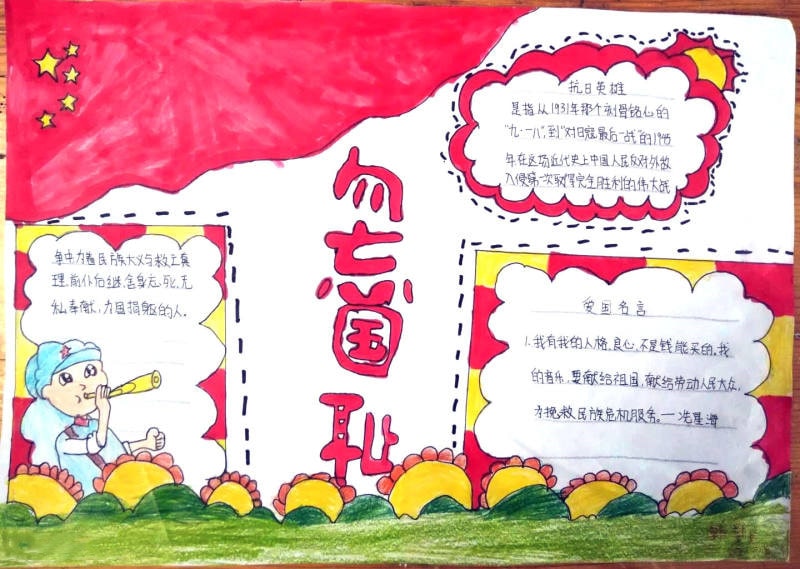 抗日英雄
是指从1931年那个刻骨铭心的
"九·一八",到"对日寇最后一战"的1945
年在这场近代史上中国人民反对外敌
入侵第一次取得完全胜利的伟大战
争中,为着民族大义与救亡真
理,前仆后继,舍身忘死,无
私奉献,为国捐躯的人.
勿
忘
国
耻
爱国名言
1.我有我的人格、良心、不是钱能买的。我
的音乐,要献给祖国,献给劳动人民大众,
为挽救民族危机服务。—冼星海